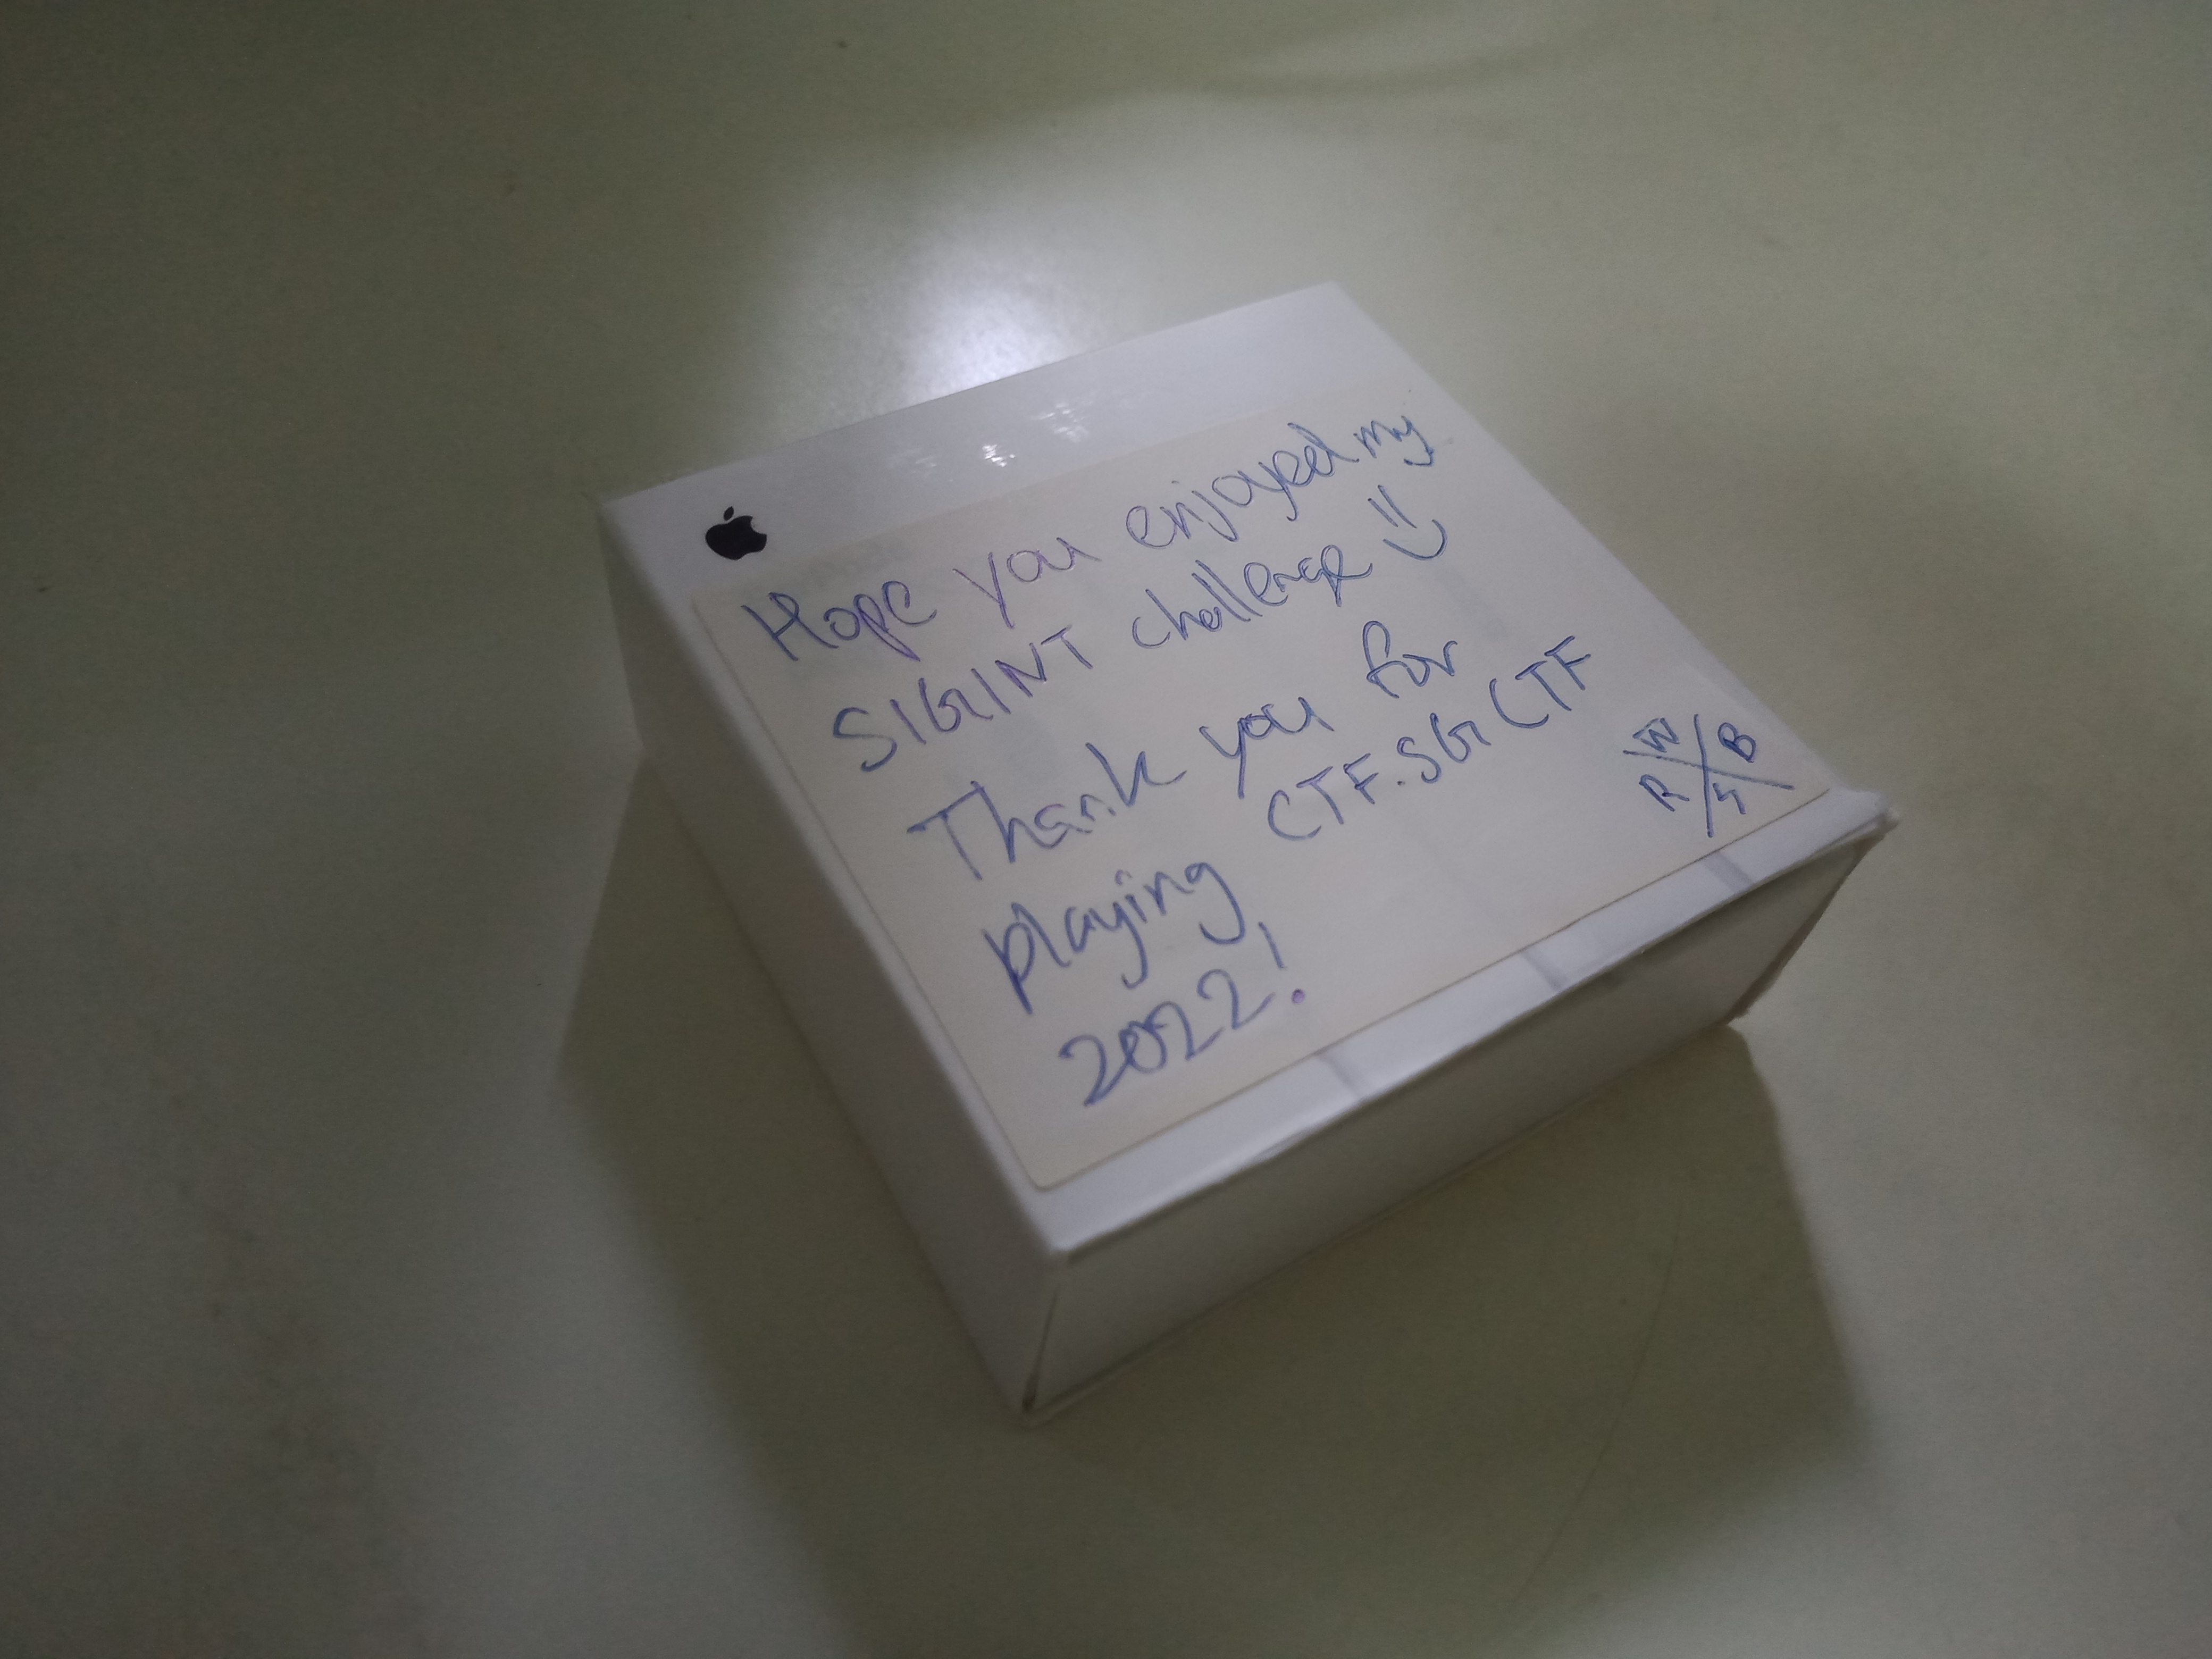 Hope you enjoyed my
SIGINT challenge :)
Thank you for
playing CTF.SG CTF
2022!
W B
R S